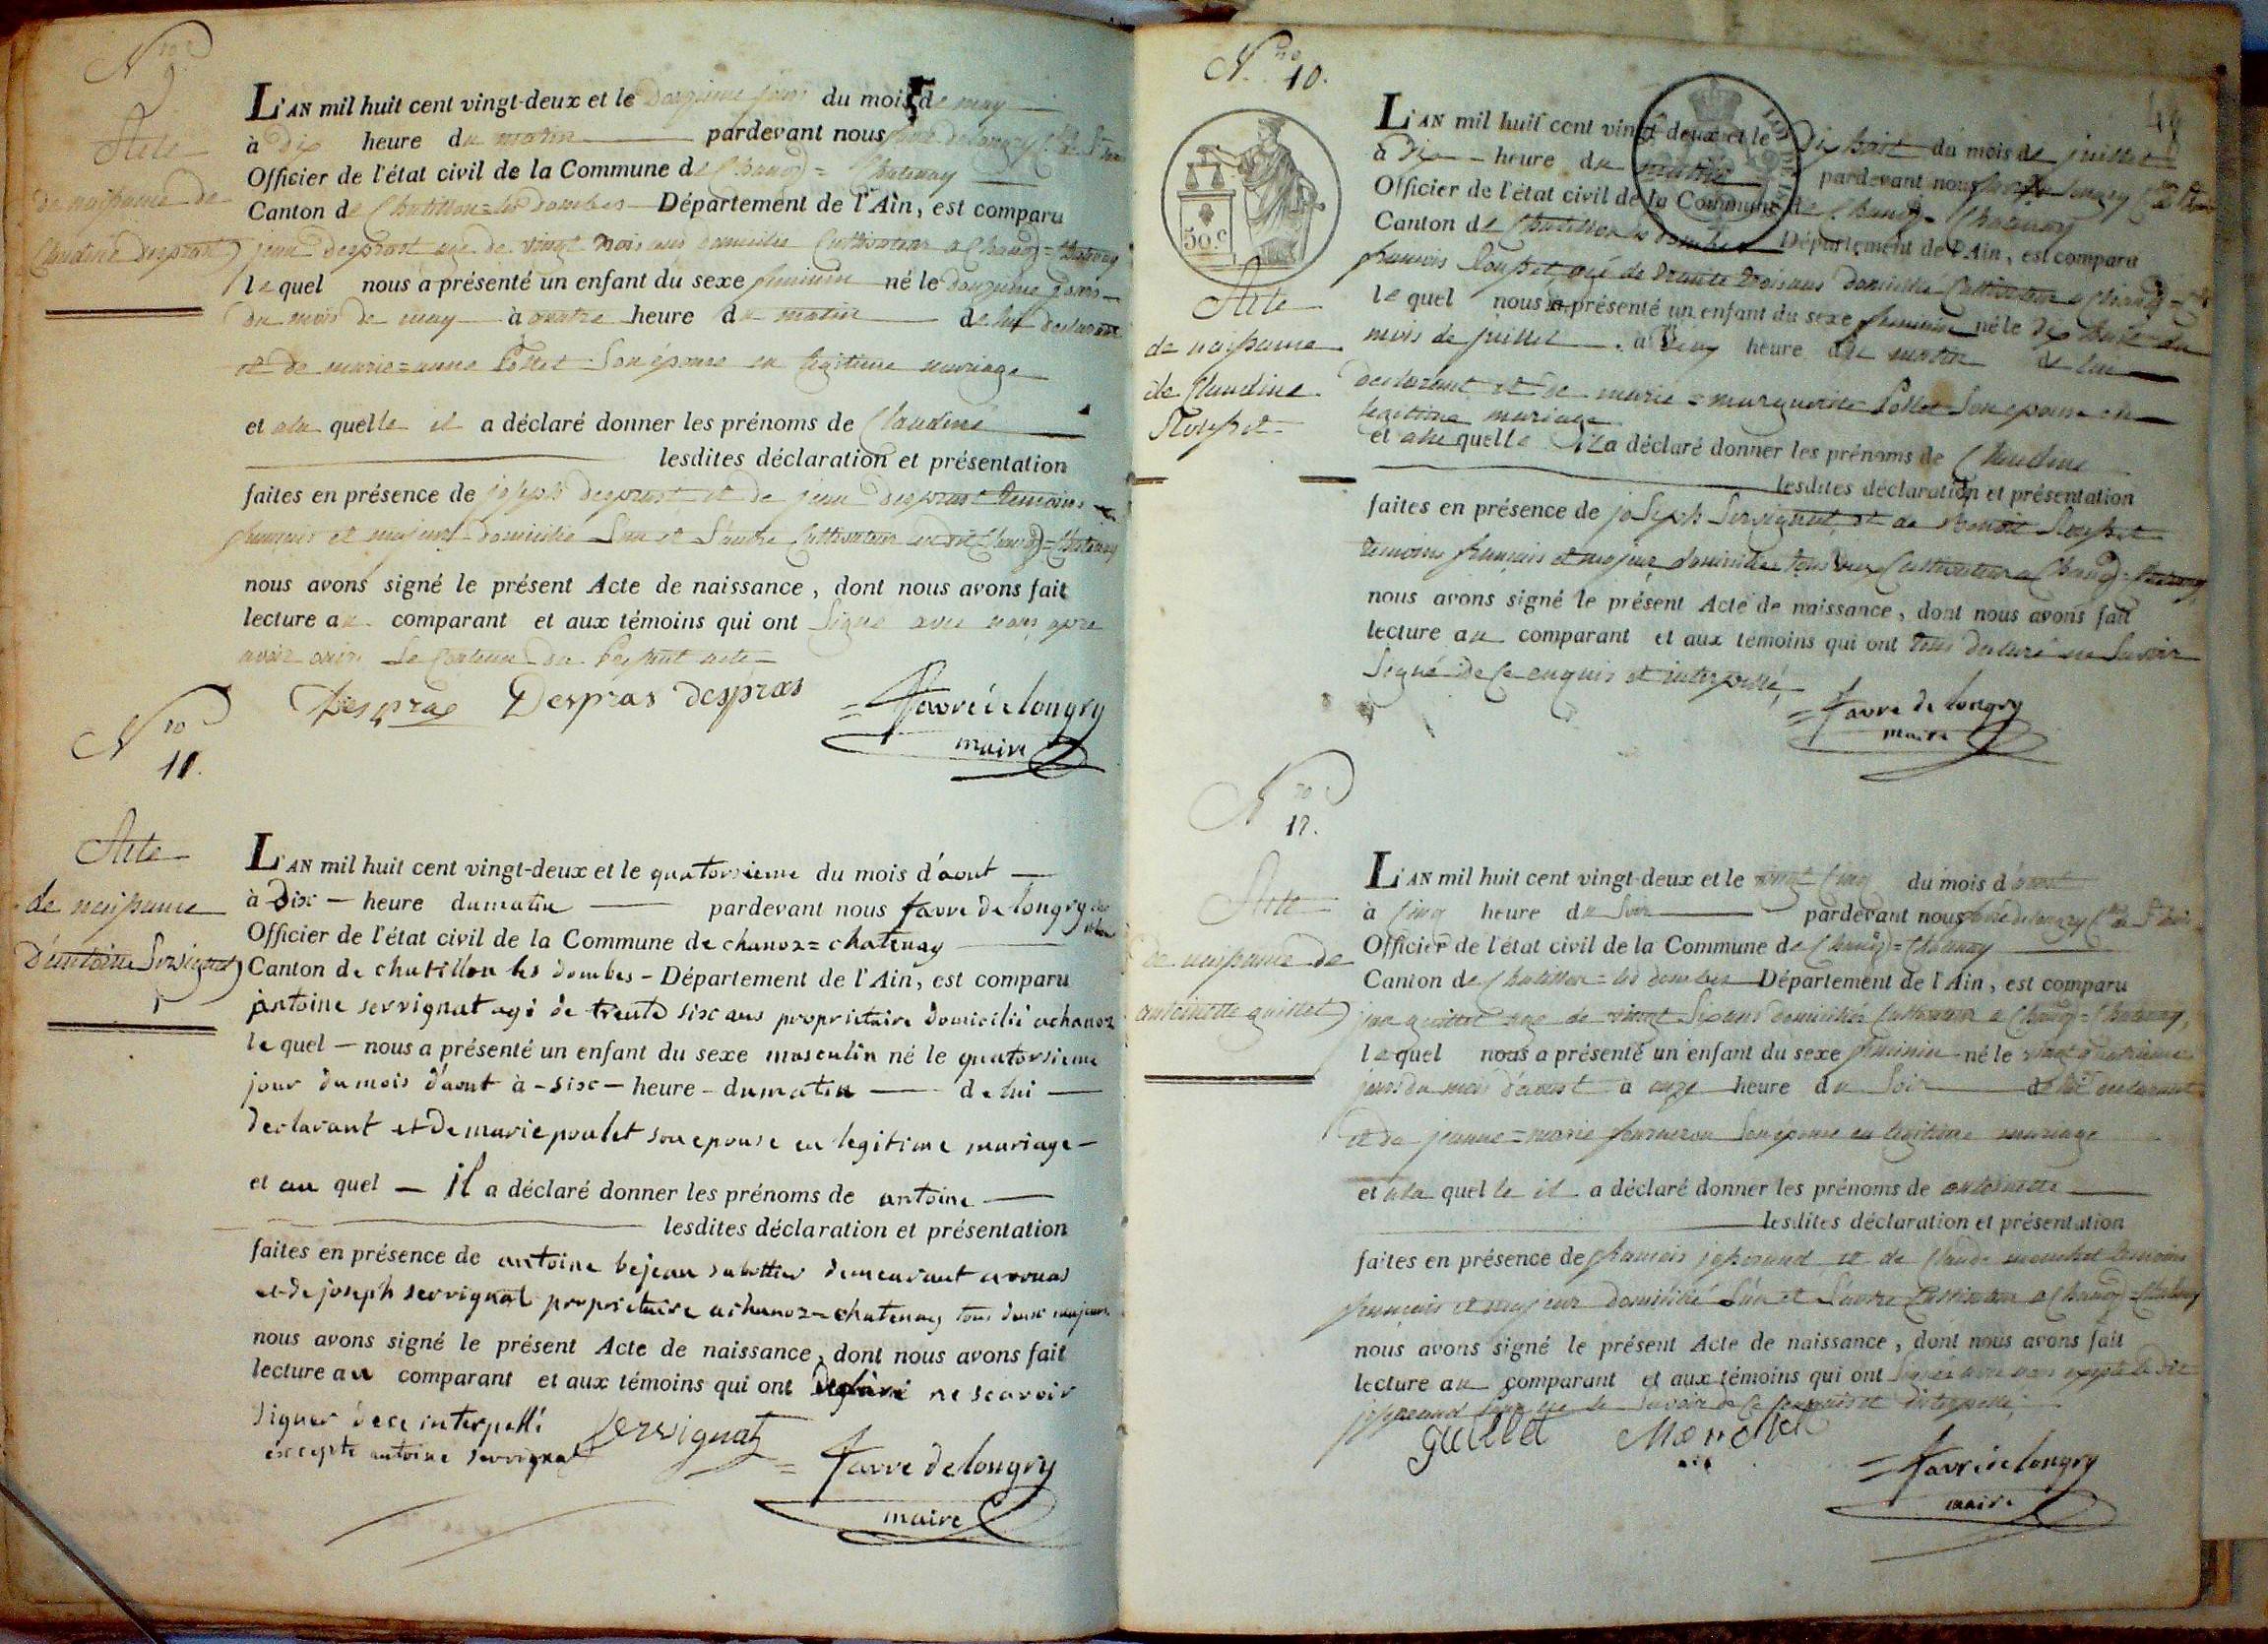 Nro 9
Acte
de naissance de
Claudine despras
L'AN mil huit cent vingt-deux et le douzieme jour du mois de may
à dix heure du matin pardevant nous favre delongry
Officier de l'état civil de la Commune de Chanoz = Chatenay
Canton de Chatillon = les dombes Département de l'Ain, est comparu
jean despras agé de vingt trois ans domicilié Cultivateur a Chanoz = Chatenay
lequel nous a présenté un enfant du sexe feminin né le douzieme jour
du mois de may à quatre heure du matin de lui declarant
et de marie = anne Pollet son épouse en legitime mariage
et a la quelle il a déclaré donner les prénoms de Claudine
lesdites déclaration et présentation
faites en présence de joseph despras et de jean despras temoins
francais et majeur domicilié l'un et l'autre Cultivateur au dit Chanoz = Chatenay
nous avons signé le présent Acte de naissance, dont nous avons fait
lecture au comparant et aux témoins qui ont signé avec nous apre
avoir ouir le Contenu du present acte
Despras Despras despras
= favre delongry
maire
Nro 11.
Acte
de naissance
D'antoine Servignat
L'AN mil huit cent vingt-deux et le quatorsieme du mois d'aout
à Dix - heure du matin pardevant nous favre de longry
Officier de l'état civil de la Commune de chanoz = chatenay
Canton de chatillon les dombes - Département de l'Ain, est comparu
antoine servignat agé de trente six ans proprietaire domicilié a chanoz
le quel - nous a présenté un enfant du sexe masculin né le quatorsieme
jour du mois d'aout à - six - heure - du matin de lui
declarant et de marie poulet son epouse en legitime mariage -
et au quel - il a déclaré donner les prénoms de antoine
lesdites déclaration et présentation
faites en présence de antoine bejean sabottier demeurant a vonas
et de joseph servignat proprietaire a chanoz = chatenay tous deux majeurs
nous avons signé le présent Acte de naissance, dont nous avons fait
lecture au comparant et aux témoins qui ont déclaré ne scavoir
signer de ce interpellé
excepte antoine servignat
Servignat
= favre delongry
maire
Nro 10.
50.c
Acte
de naissance
de Claudine
Rousset
L'AN mil huit cent vingt deux et le dix huit du mois de juillet
à dix heure du matin pardevant nous favre de longry
Officier de l'état civil de la Commune de Chanoz = Chatenay
Canton de Chatillon les dombes Département de l'Ain, est comparu
francois Rousset, agé de trente trois ans domicilié Cultivateur a Chanoz =
lequel nous a présenté un enfant du sexe feminin né le dix huit du
mois de juillet à heure du matin de lui
declarant et de marie = marguerite Pollet son epouse en
legitime mariage
et a la quelle il a déclaré donner les prénoms de Claudine
lesdites déclaration et présentation
faites en présence de joseph Servignat et de Benoit Rousset
temoins francais et majeur domicilié tous deux Cultivateur a Chanoz = Chatenay
nous avons signé le présent Acte de naissance, dont nous avons fait
lecture au comparant et aux témoins qui ont tous declaré ne savoir
signé de ce enquis et interpellé
= favre de longry
maire
Nro 12.
Acte
de naissance de
antoinette guillet
L'AN mil huit cent vingt-deux et le vingt Cinq du mois d'aout
à Cinq heure du soir pardevant nous favre delongry
Officier de l'état civil de la Commune de Chanoz = Chatenay
Canton de Chatillon = les dombes Département de l'Ain, est comparu
jean guillet agé de vingt six ans domicilié Cultivateur a Chanoz = Chatenay,
lequel nous a présenté un enfant du sexe feminin né le vingt quatrieme
jour du mois d'aout à onze heure du soir de lui declarant
et de jeanne = marie son épouse en legitime mariage
et a la quelle il a déclaré donner les prénoms de antoinette
lesdites déclaration et présentation
faites en présence de francois josserand et de Claude monchet temoins
francais et majeur domicilié l'un et l'autre Cultivateur a Chanoz = Chatenay
nous avons signé le présent Acte de naissance, dont nous avons fait
lecture au comparant et aux témoins qui ont signé avec nous excepté le dit
josserand pour ne le savoir de ce enquis et interpellé
guillet
= favre delongry
maire